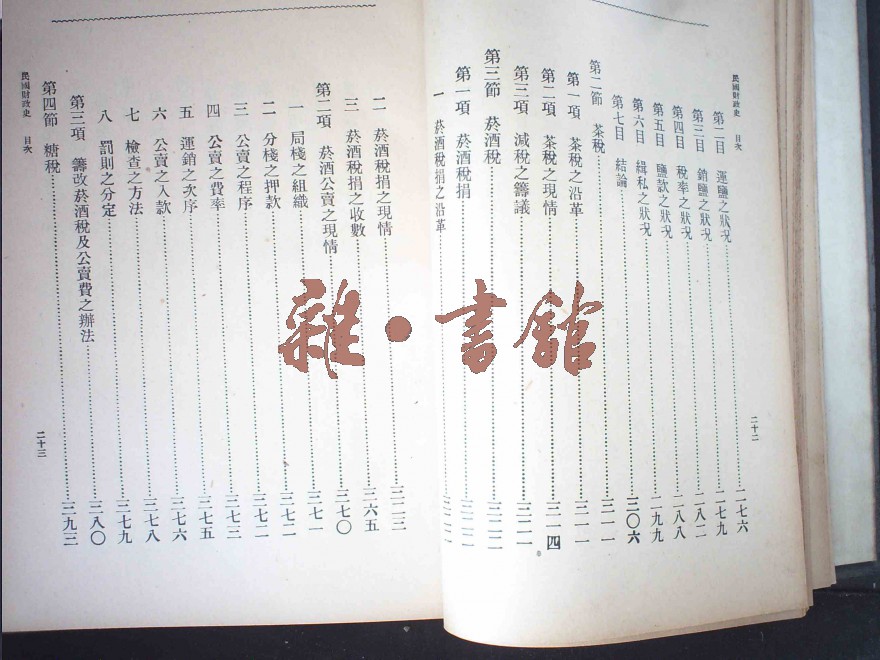 民國財政史 目次
第二目 運鹽之狀況 二七六
第三目 銷鹽之狀況 二七九
第四目 稅率之狀況 二八二
第五目 鹽款之狀況 二八八
第六目 緝私之狀況 二九九
第七目 結論 三〇六
第二節 茶稅 三一一
第一項 茶稅之沿革 三一一
第二項 茶稅之現情 三一四
第三項 減稅之籌議 三二一
第三節 菸酒稅 三二二
第一項 菸酒稅捐 三二二
一 菸酒稅捐之沿革
二十二
民國財政史 目次
二 菸酒稅捐之現情 三二三
三 菸酒稅捐之收數 三六五
第二項 菸酒公賣之現情 三七〇
一 局棧之組織 三七一
二 分棧之押款 三七二
三 公賣之程序 三七二
四 公賣之費率 三七三
五 運銷之次序 三七五
六 公賣之入款 三七六
七 檢查之方法 三七八
八 罰則之分定 三七九
第三項 籌改菸酒稅及公賣費之辦法 三八〇
第四節 糖稅 三九三
二十三
雜·書館